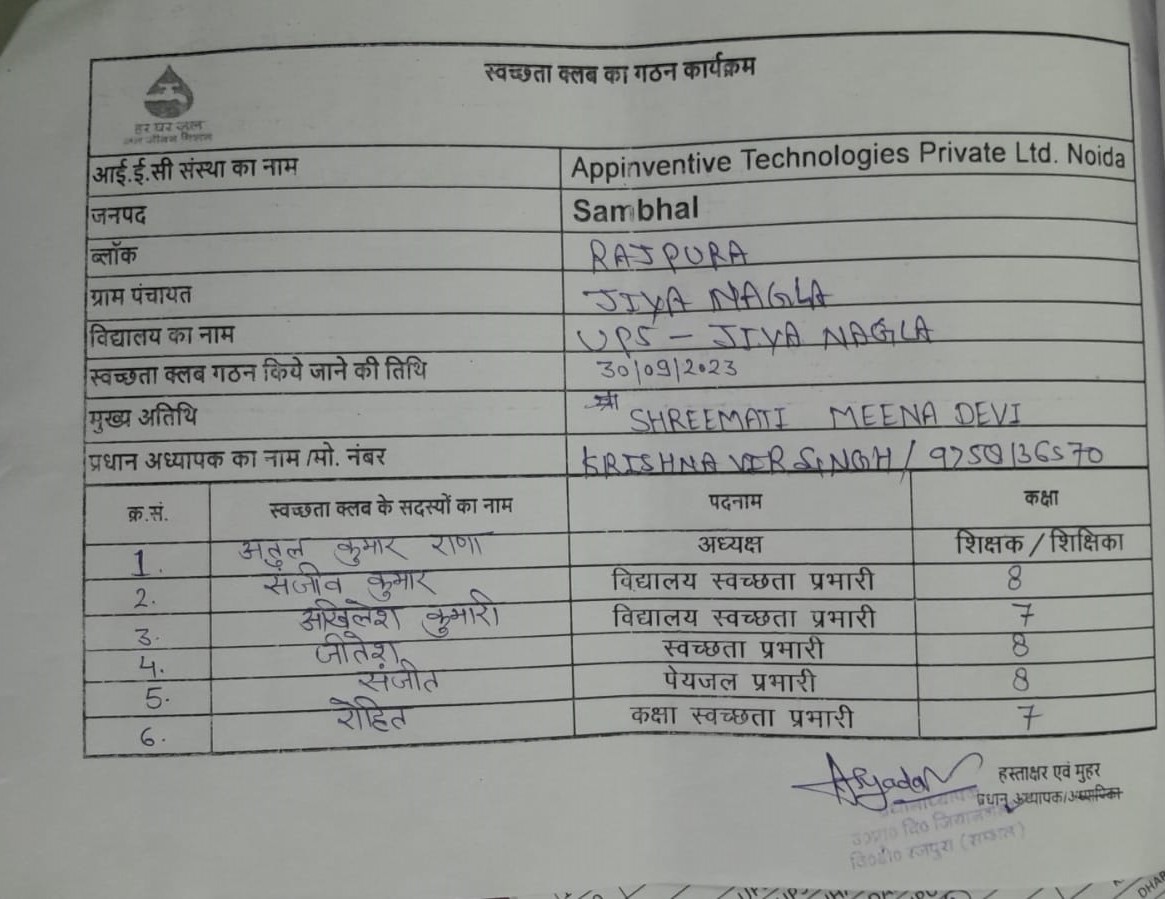 स्वच्छता क्लब का गठन कार्यक्रम
हर घर जल
जल जीवन मिशन
आई.ई.सी संस्था का नाम Appinventive Technologies Private Ltd. Noida
जनपद Sambhal
ब्लॉक RAJPURA
ग्राम पंचायत JIYA NAGLA
विद्यालय का नाम UPS - JIYA NAGLA
स्वच्छता क्लब गठन किये जाने की तिथि 30/09/2023
मुख्य अतिथि SHREEMATI MEENA DEVI
प्रधान अध्यापक का नाम /मो. नंबर KRISHNA VIR SINGH /
क्र.सं. स्वच्छता क्लब के सदस्यों का नाम पदनाम कक्षा
1. अतुल कुमार राणा अध्यक्ष शिक्षक / शिक्षिका
2. संजीव कुमार विद्यालय स्वच्छता प्रभारी 8
3. अखिलेश कुमारी विद्यालय स्वच्छता प्रभारी 7
4. जीतेश स्वच्छता प्रभारी 8
5. संजीत पेयजल प्रभारी 8
6. रोहित कक्षा स्वच्छता प्रभारी 7
हस्ताक्षर एवं मुहर
प्रधान अध्यापक/अध्यापिका
वि०ख० रजपुरा (सम्भल)